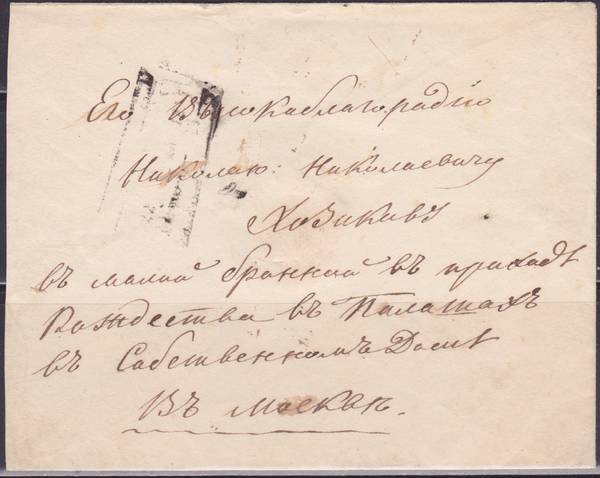 Его Высокаблагородію
Николаю Николаевичу
Хозикову
въ малой бронной въ приходѣ
Рождества въ Палатахъ
въ Собственномъ Домѣ
Въ Москвѣ.